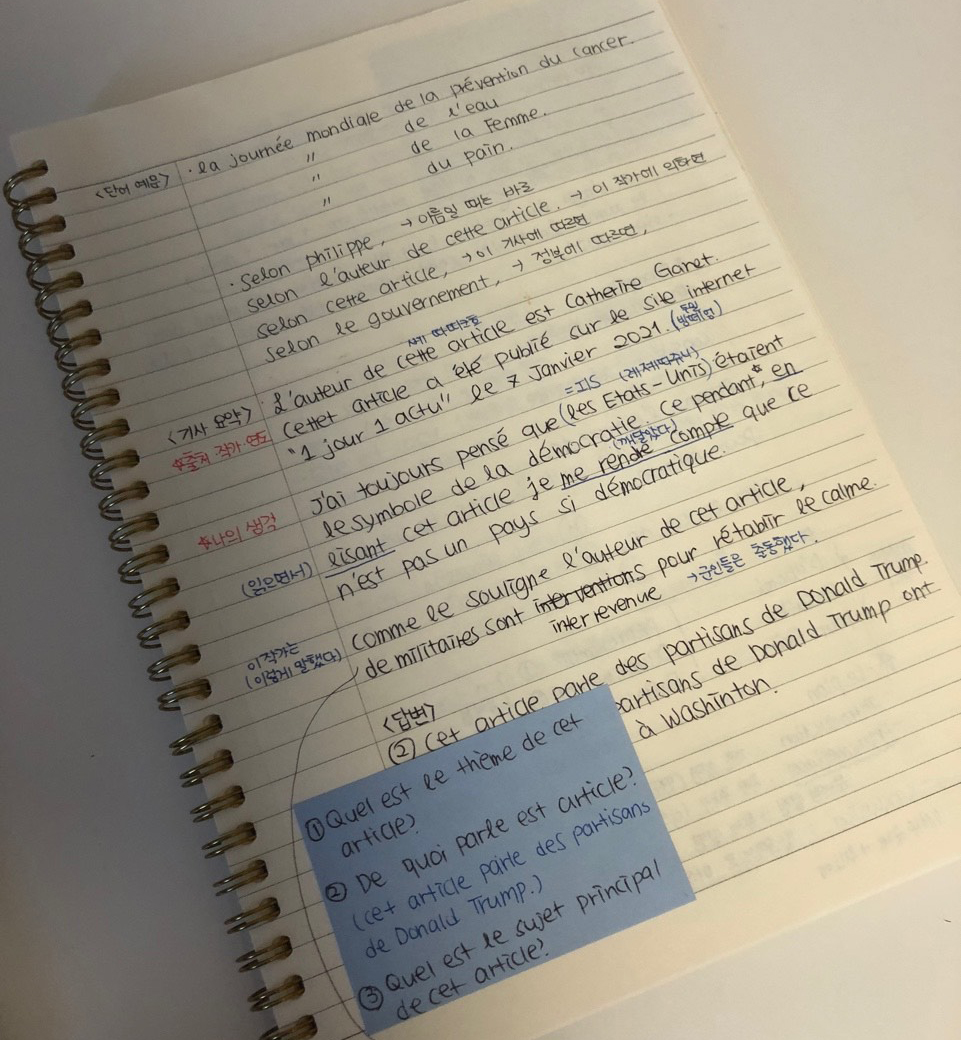 <단어 예문>
· la journée mondiale de la prévention du cancer.
〃 de l'eau
〃 de la Femme.
〃 du pain.
· Selon philippe, → 이름일 때는 바로
selon l'auteur de cette article. → 이 작가에 의하면
selon cette article, → 이 기사에 따르면
Selon le gouvernement, → 정부에 따르면,
<기사 요약>
*출처 작가·연도
L'auteur de cette article est Catherine Ganet.
cettet article a été publié sur le site internet
"1 jour 1 actu" le 7 Janvier 2021.
= IS (레제따쥬니)
*나의 생각
J'ai toujours pensé que (les Etats-Unis) étaient
le symbole de la démocratie. ce pendant*, en
(깨달았다)
(읽으면서)
lisant cet article je me rende compte que ce
n'est pas un pays si démocratique.
이 작가는
(이렇게 말했다)
comme le souligne l'auteur de cet article,
de militaires sont interventions pour rétablir le calme.
interrevenue → 군인들은 출동했다.
<답변>
② cet article parle des partisans de Donald Trump.
partisans de Donald Trump ont
à Washinton.
① Quel est le thème de cet
article?
② De quoi parle est article?
(cet article parle des partisans
de Donald Trump.)
③ Quel est le sujet principal
de cet article?